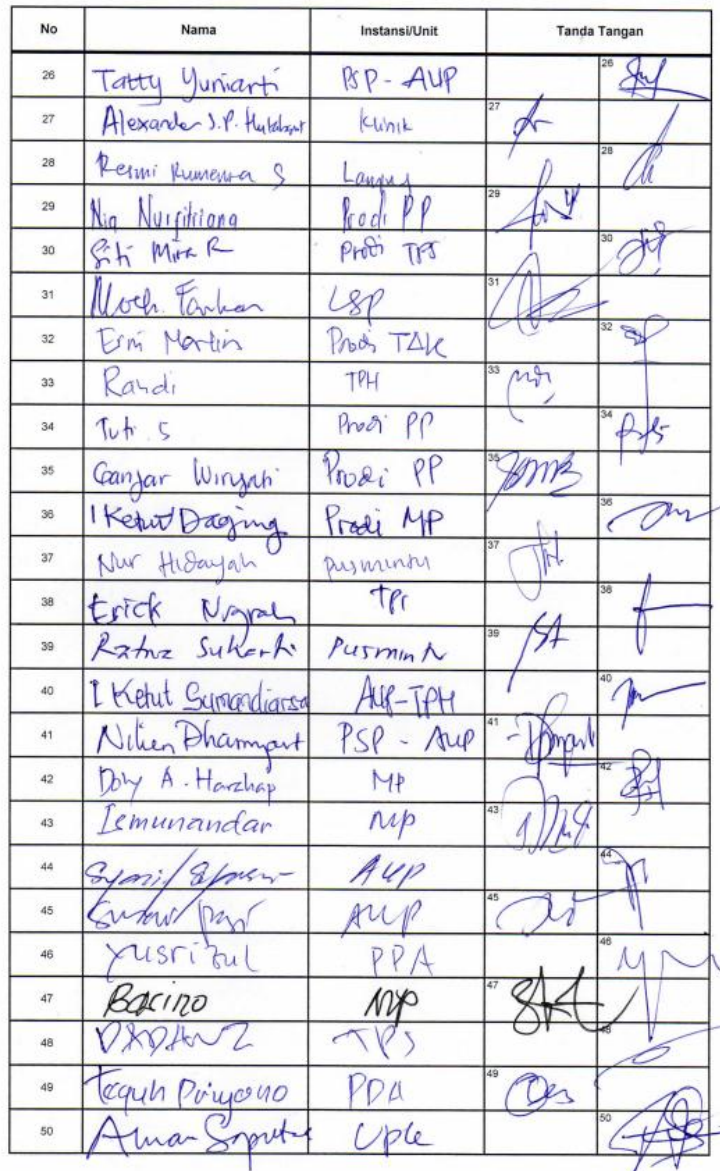 No Nama Instansi/Unit Tanda Tangan
26 Tatty Yuniarti PSP - AUP 26
27 Alexander S.P. Klinik 27
28 Resmi S 28
29 Nia Nurfitriana Prodi PP 29
30 Siti Mira R Prodi TPS 30
31 Moch. Farhan LSP 31
32 Erni Martin Prodi TAK 32
33 Randi TPH 33
34 Tuti S Prodi PP 34
35 Ganjar Wiryati Prodi PP 35
36 I Ketut Daging Prodi MP 36
37 Nur Hidayah pusmintu 37
38 Erick Nugraha 38
39 Ratna Suharti Pusmintu 39
40 I Ketut Sumandiarsa AUP-TPH 40
41 PSP - AUP 41
42 Dony A. Harahap MP 42
43 Ismunandar MP 43
44 AUP 44
45 AUP 45
46 Yusrizul PPA 46
47 Basino MP 47
48 TPS 48
49 Teguh Priyono PDA 49
50 Aman Saputra 50